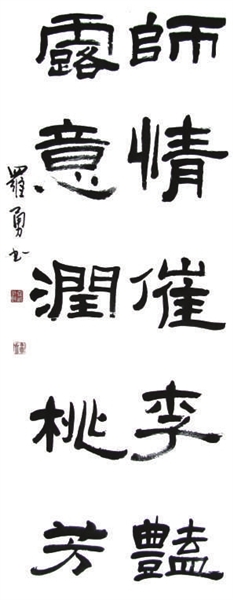 師情催李豔
露意潤桃芳
羅勇书